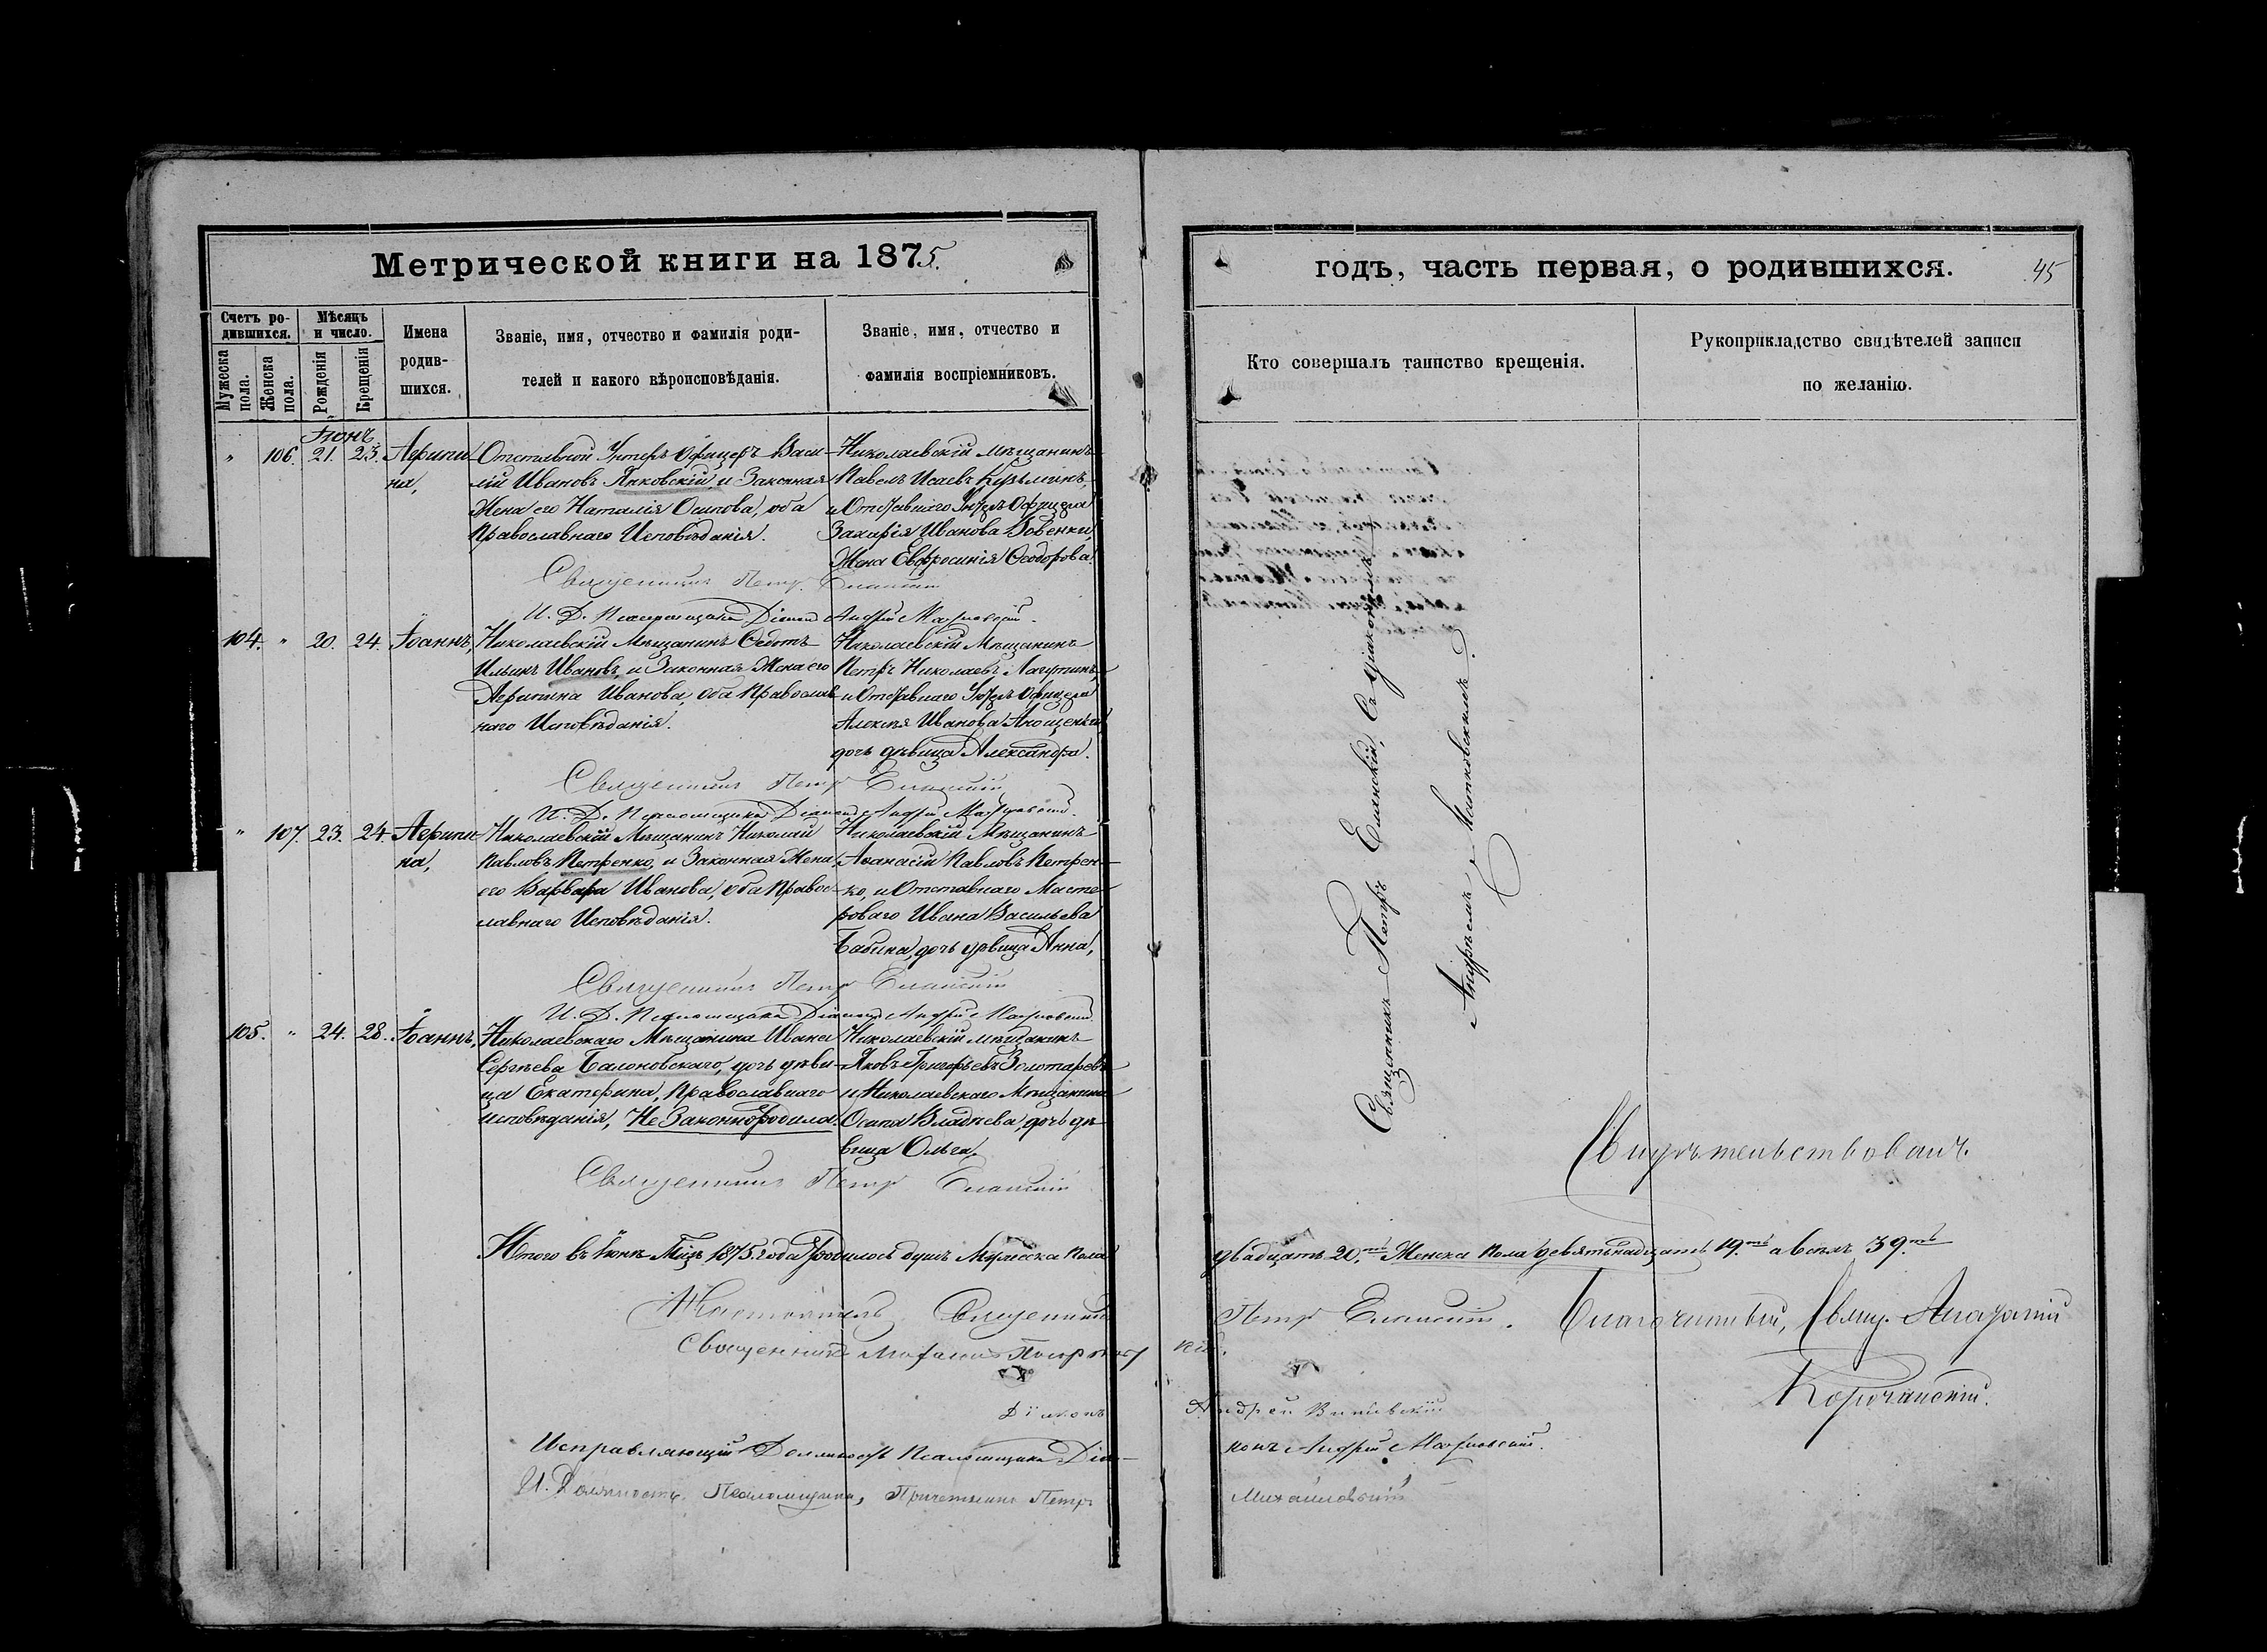 Метрической книги на 1875.
Счетъ родившихся.
Мужеска пола.
Женска пола.
Мѣсяцъ и число.
Рожденія
Крещенія
Имена родившихся.
Званіе, имя, отчество и фамилія родителей и какого вѣроисповѣданія.
Званіе, имя, отчество и фамилія воспріемниковъ.
Іюнь
" 106. 21. 23. Агрипина,
Отставной Унтеръ Офицеръ Васи-
лій Ивановъ Янковскій, и Законная
Жена его Наталія Осипова, оба
Православнаго Исповѣданія.
Николаевскій мѣщанинъ
Павелъ Исаевъ Кузьминъ,
и Отставнаго Унтеръ Офицера
Захарія Иванова Вовенки,
Жена Евфросинія Ѳеодорова.
Священникъ Петръ Еланскій
И. Д. Псаломщика Діаконъ Андрей
104. " 20. 24. Іоаннъ,
Николаевскій Мѣщанинъ Ѳедотъ
Ильинъ Ивановъ, и Законная Жена его
Агрипина Иванова, оба Православ-
наго Исповѣданія.
Николаевскій Мѣщанинъ
Петръ Николаевъ Лагутинъ,
и Отставнаго Унтеръ Офицера
Алексѣя Иванова
дочь дѣвица Александра.
Священникъ Петръ Еланскій
И. Д. Псаломщика Діаконъ Андрей
" 107. 23. 24. Агрипина,
Николаевскій Мѣщанинъ Николай
Павловъ Петренко, и Законная Жена
его Варвара Иванова, оба Правос-
лавнаго Исповѣданія.
Николаевскій Мѣщанинъ
Аѳанасій Павловъ Петрен-
ко, и Отставнаго Масте-
роваго Ивана Васильева
Бабина, дочь дѣвица Анна,
Священникъ Петръ Еланскій
И. Д. Псаломщика Діаконъ Андрей
105. " 24. 28. Іоаннъ,
Николаевскаго Мѣщанина Ивана
Сергѣева Балоновскаго, дочь дѣви-
ца Екатерина, Православнаго
исповѣданія, Не Законнородила.
Николаевскій мѣщанинъ
Яковъ Григорьевъ Золотаревъ
и Николаевскаго Мѣщанина
Осипа Владнева, дочь дѣ-
вица Ольга.
Священникъ Петръ Еланскій
Итого въ Іюнѣ Мцѣ 1875. года родилось душъ Мужеска пола
Настоятель Священникъ
Священникъ Михаилъ
Діаконъ
Исправляющій Должность Псаломщика Діа-
И. Должность Псаломщика, Причетникъ Петръ
годъ, часть первая, о родившихся.
45
Кто совершалъ таинство крещенія.
Рукоприкладство свидѣтелей записи по желанію.
Священникъ Петръ Еланскій, съ діакономъ
Андреемъ
Свидѣтельствовалъ
двадцать 20.ть Женска пола девятьнадцать 19.ть а всѣхъ 39.ть
Петръ Еланскій.
Благочинный, Свящ.
кій.
Андрей
конъ Андрей
Михайловскій
Корочанскій.